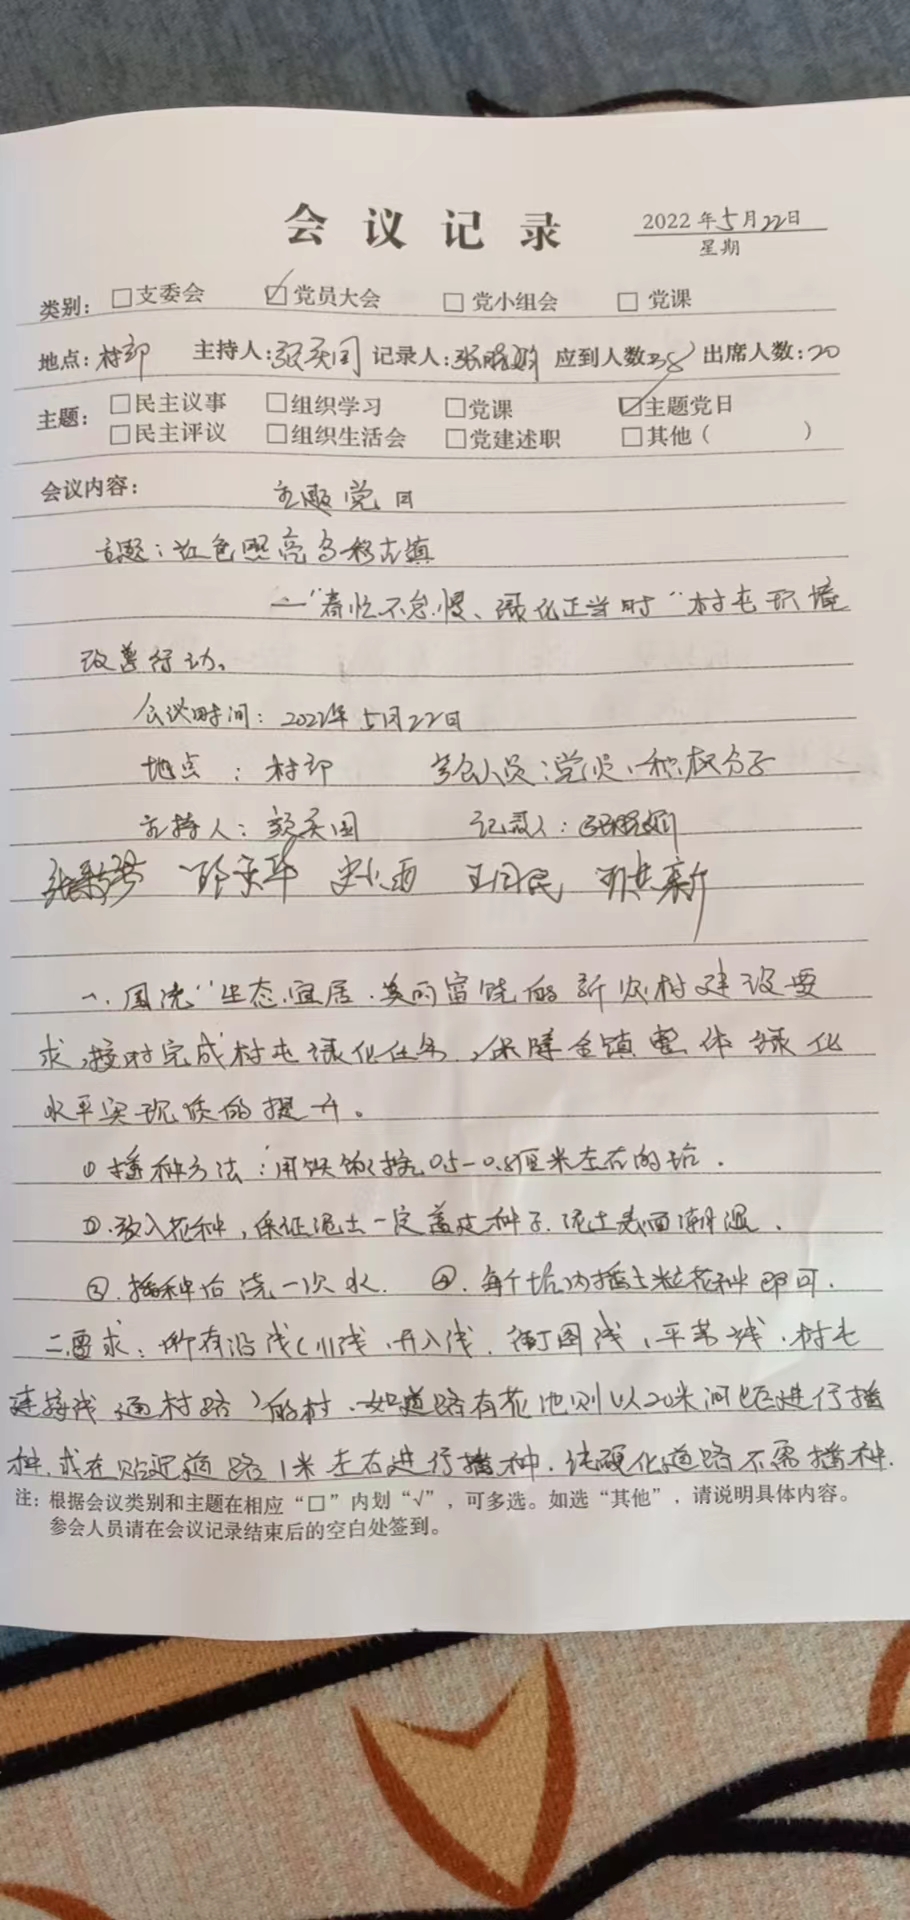 会议记录
2022年5月22日
星期
类别: □支委会 ☑党员大会 □党小组会 □党课
地点:村部 主持人: 记录人:张 应到人数:38 出席人数:20
主题: □民主议事 □组织学习 □党课 ☑主题党日
□民主评议 □组织生活会 □党建述职 □其他( )
会议内容: 主题党日
主题:红色照亮 古镇
—"春忙不怠慢、绿化正当时"村屯环境
改善行动。
会议时间:2022年5月22日
地点:村部 参会人员:党员、积极分子
主持人: 记录人:
王国民
一、围绕"生态宜居、美丽富饶的新农村建设要
求,按时完成村屯绿化任务,保障全镇整体绿化
水平实现质的提升。
①播种方法:用铁锹挖0.5-0.8厘米左右的坑.
②.放入花种,保证泥土一定盖过种子.泥土表面潮湿.
③.播种后浇一次水. ④.每个坑内播 粒花种即可.
二.要求:所有沿线( 线、 线、村屯
连接线、通村路)的村、如道路有花池则以20米间距进行播
种.或在贴近道路1米左右进行播种.纯硬化道路不需播种.
注: 根据会议类别和主题在相应"□"内划"√",可多选。如选"其他",请说明具体内容。
参会人员请在会议记录结束后的空白处签到。